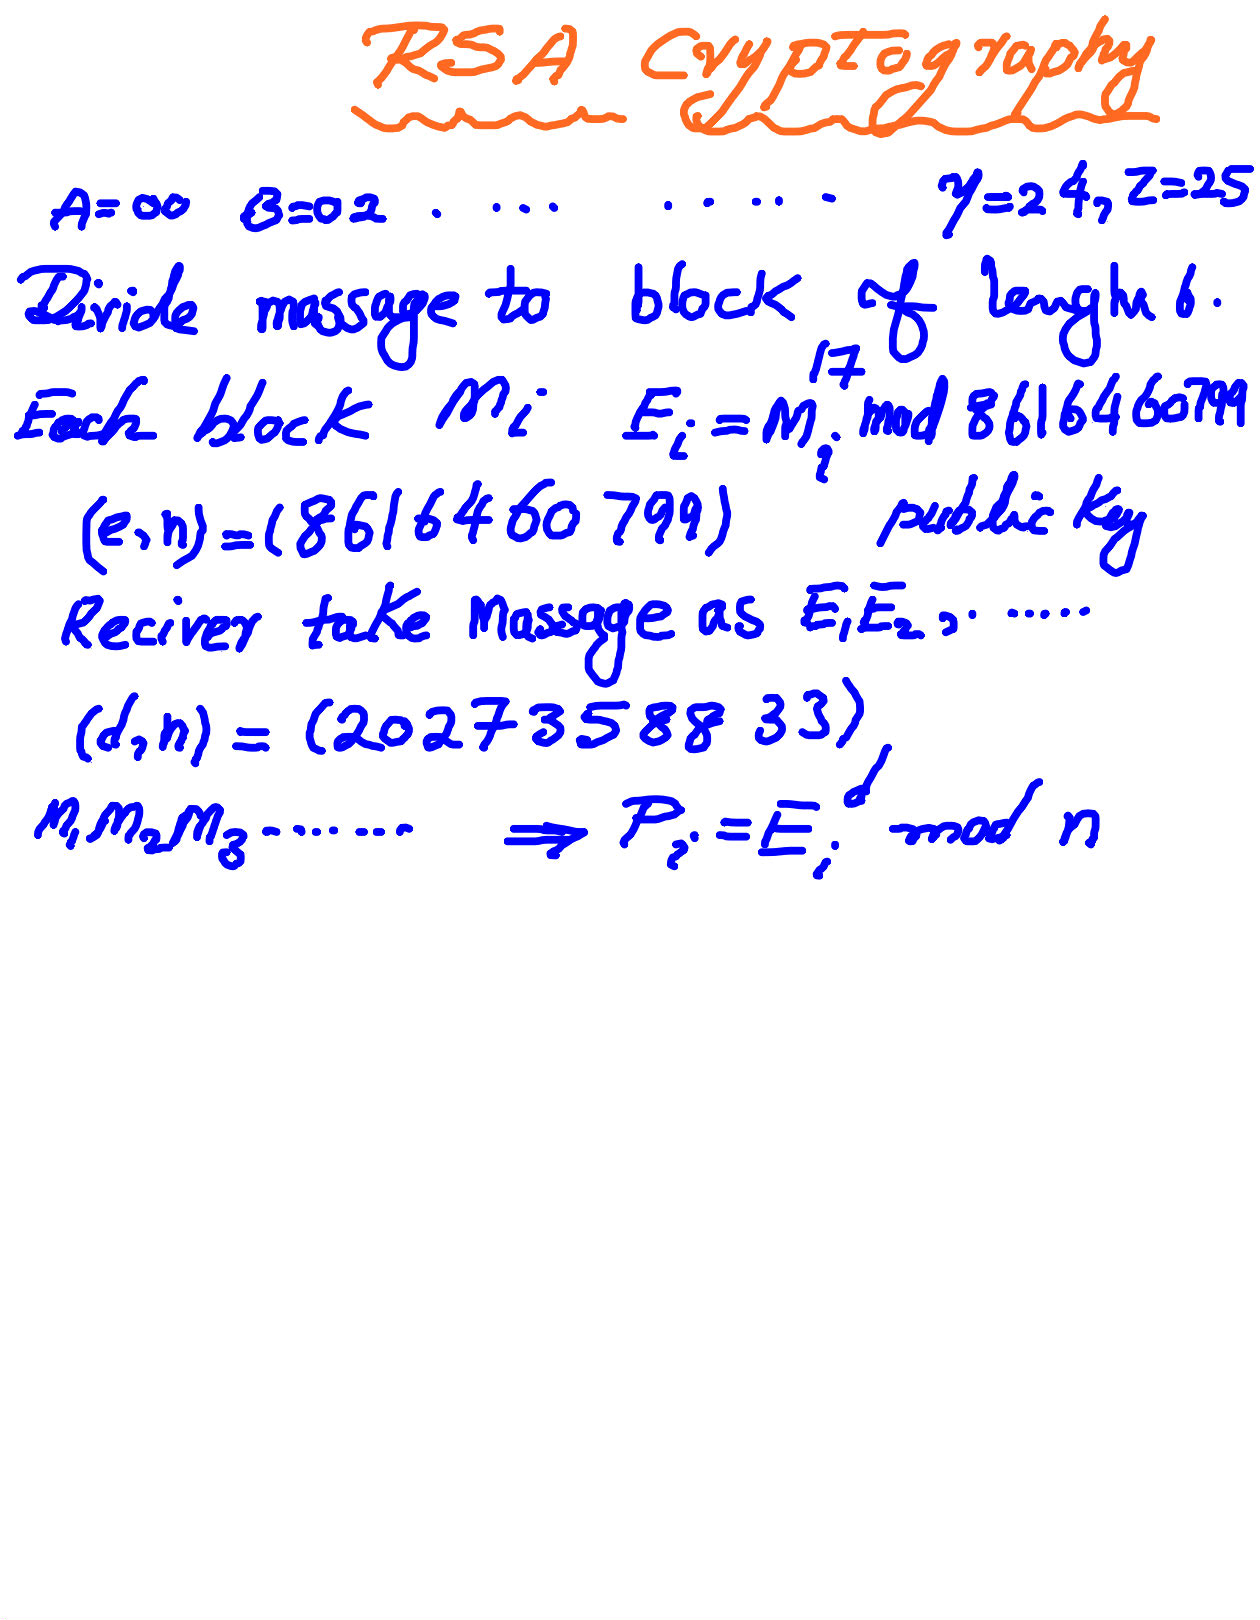 RSA Cryptography
A=00 B=02 . . . . . . . . . y=24, Z=25
Divide massage to block of lenght 6.
Each block Mi Ei = Mi^17 mod 8616460799
(e,n)=(8616460799) public key
Reciver take Massage as E1E2, . .....
(d,n) = (2027358833)
M1M2M3 ....... ⇒ Pi = Ei^d mod n